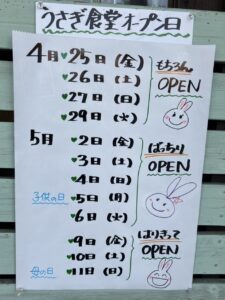 うさぎ食堂オープン日
4月 ♥25日(金)
♥26日(土)
♥27日(日)
♥29日(火)
もちろん
OPEN
5月 ♥2日(金)
♥3日(土)
♥4日(日)
子供の日 ♥5日(月)
♥6日(火)
ばっちり
OPEN
♥9日(金)
♥10日(土)
母の日 ♥11日(日)
はりきって
OPEN